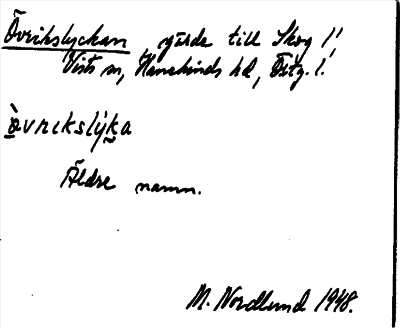 Övrikslyckan gärde till Skog 1/1,
Vists sn, Hanekinds hd, Östg. l.
òvrɩkslýka
Äldre namn.
M. Nordlund 1948.